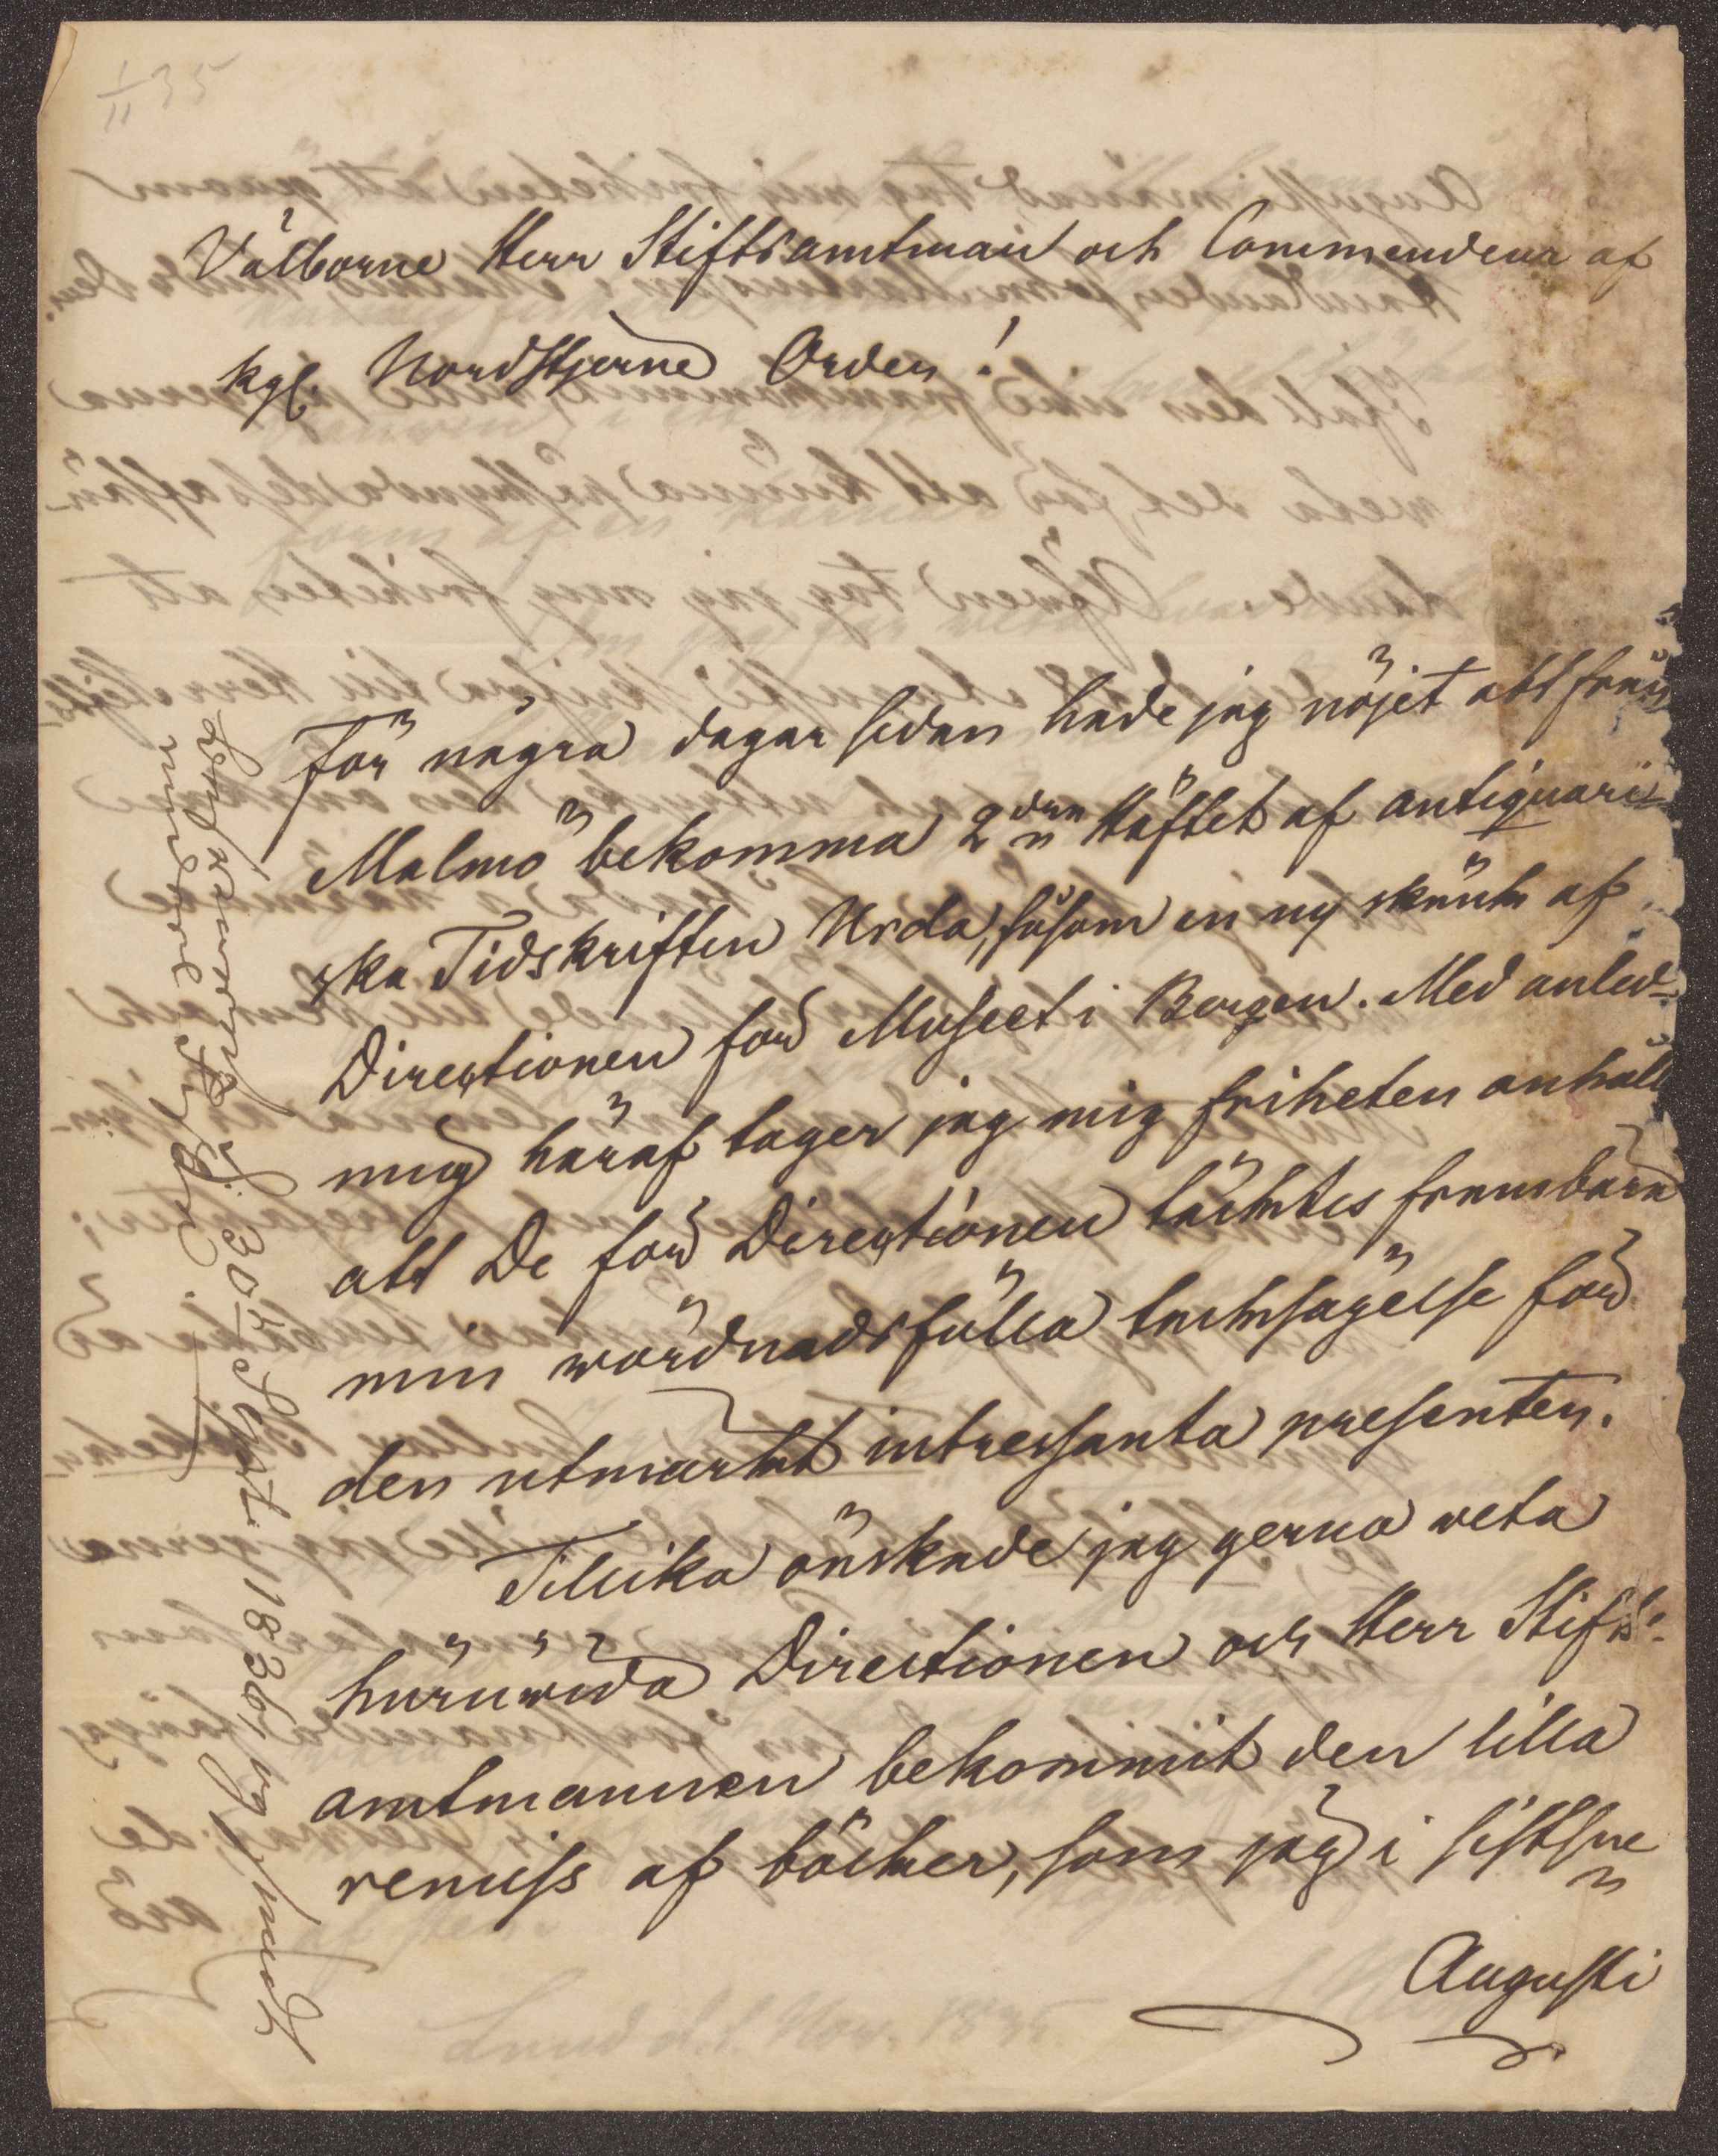 1/11 35
Välborne Herr Stiftsamtman och Commendeur af
kgl. Nordstjerne Orden!
För några dagar sedan hade jag nöjet att från
Malmö bekomma 2dra Häftet af antiquari-
ska Tidskriften Urda, såsom en ny skänk af
Directionen för Museet i Bergen. Med anled-
ning häraf tager jag mig friheten anhåll
att De för Directionen täcktes frambära
min wördnadsfulla tacksägelse för
den utmärkt intressanta presenten.
Tillika önskade jag gerna weta
huruwida Directionen och Herr Stifts-
amtmannen bekommit den lilla
remiss af böcker, som jag i sistne
Augusti
30 Sept. 1836